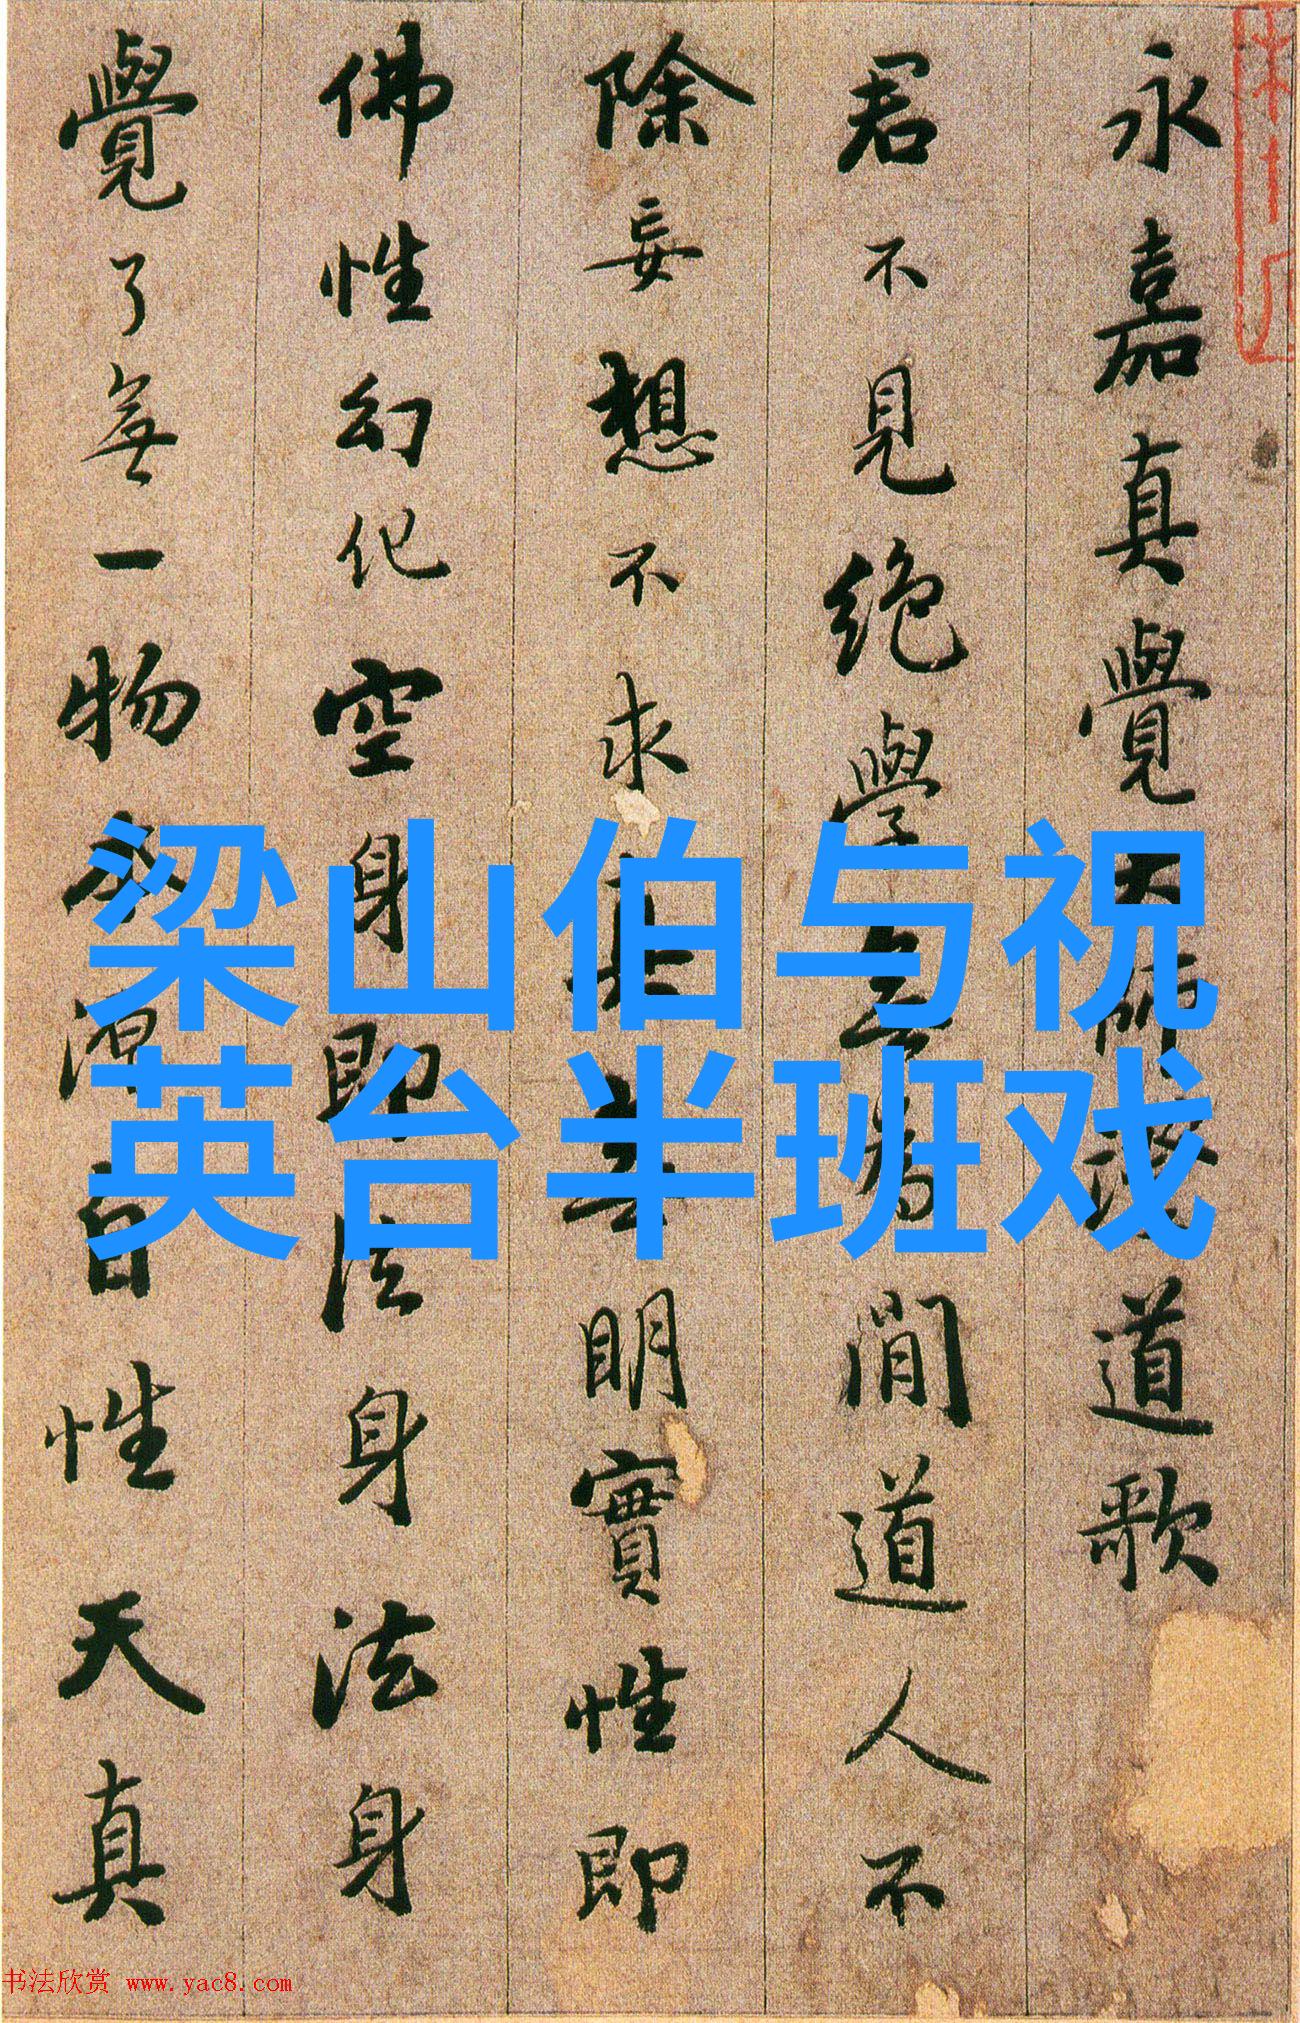 永嘉真覺大師證道歌
君不見絕學無為閒道人不
除妄想不求真無明實性即
佛性幻化空身即法身法身
覺了無一物本源自性天真
梁山伯与祝
英台半班戏
书法欣赏 www.yac8.com